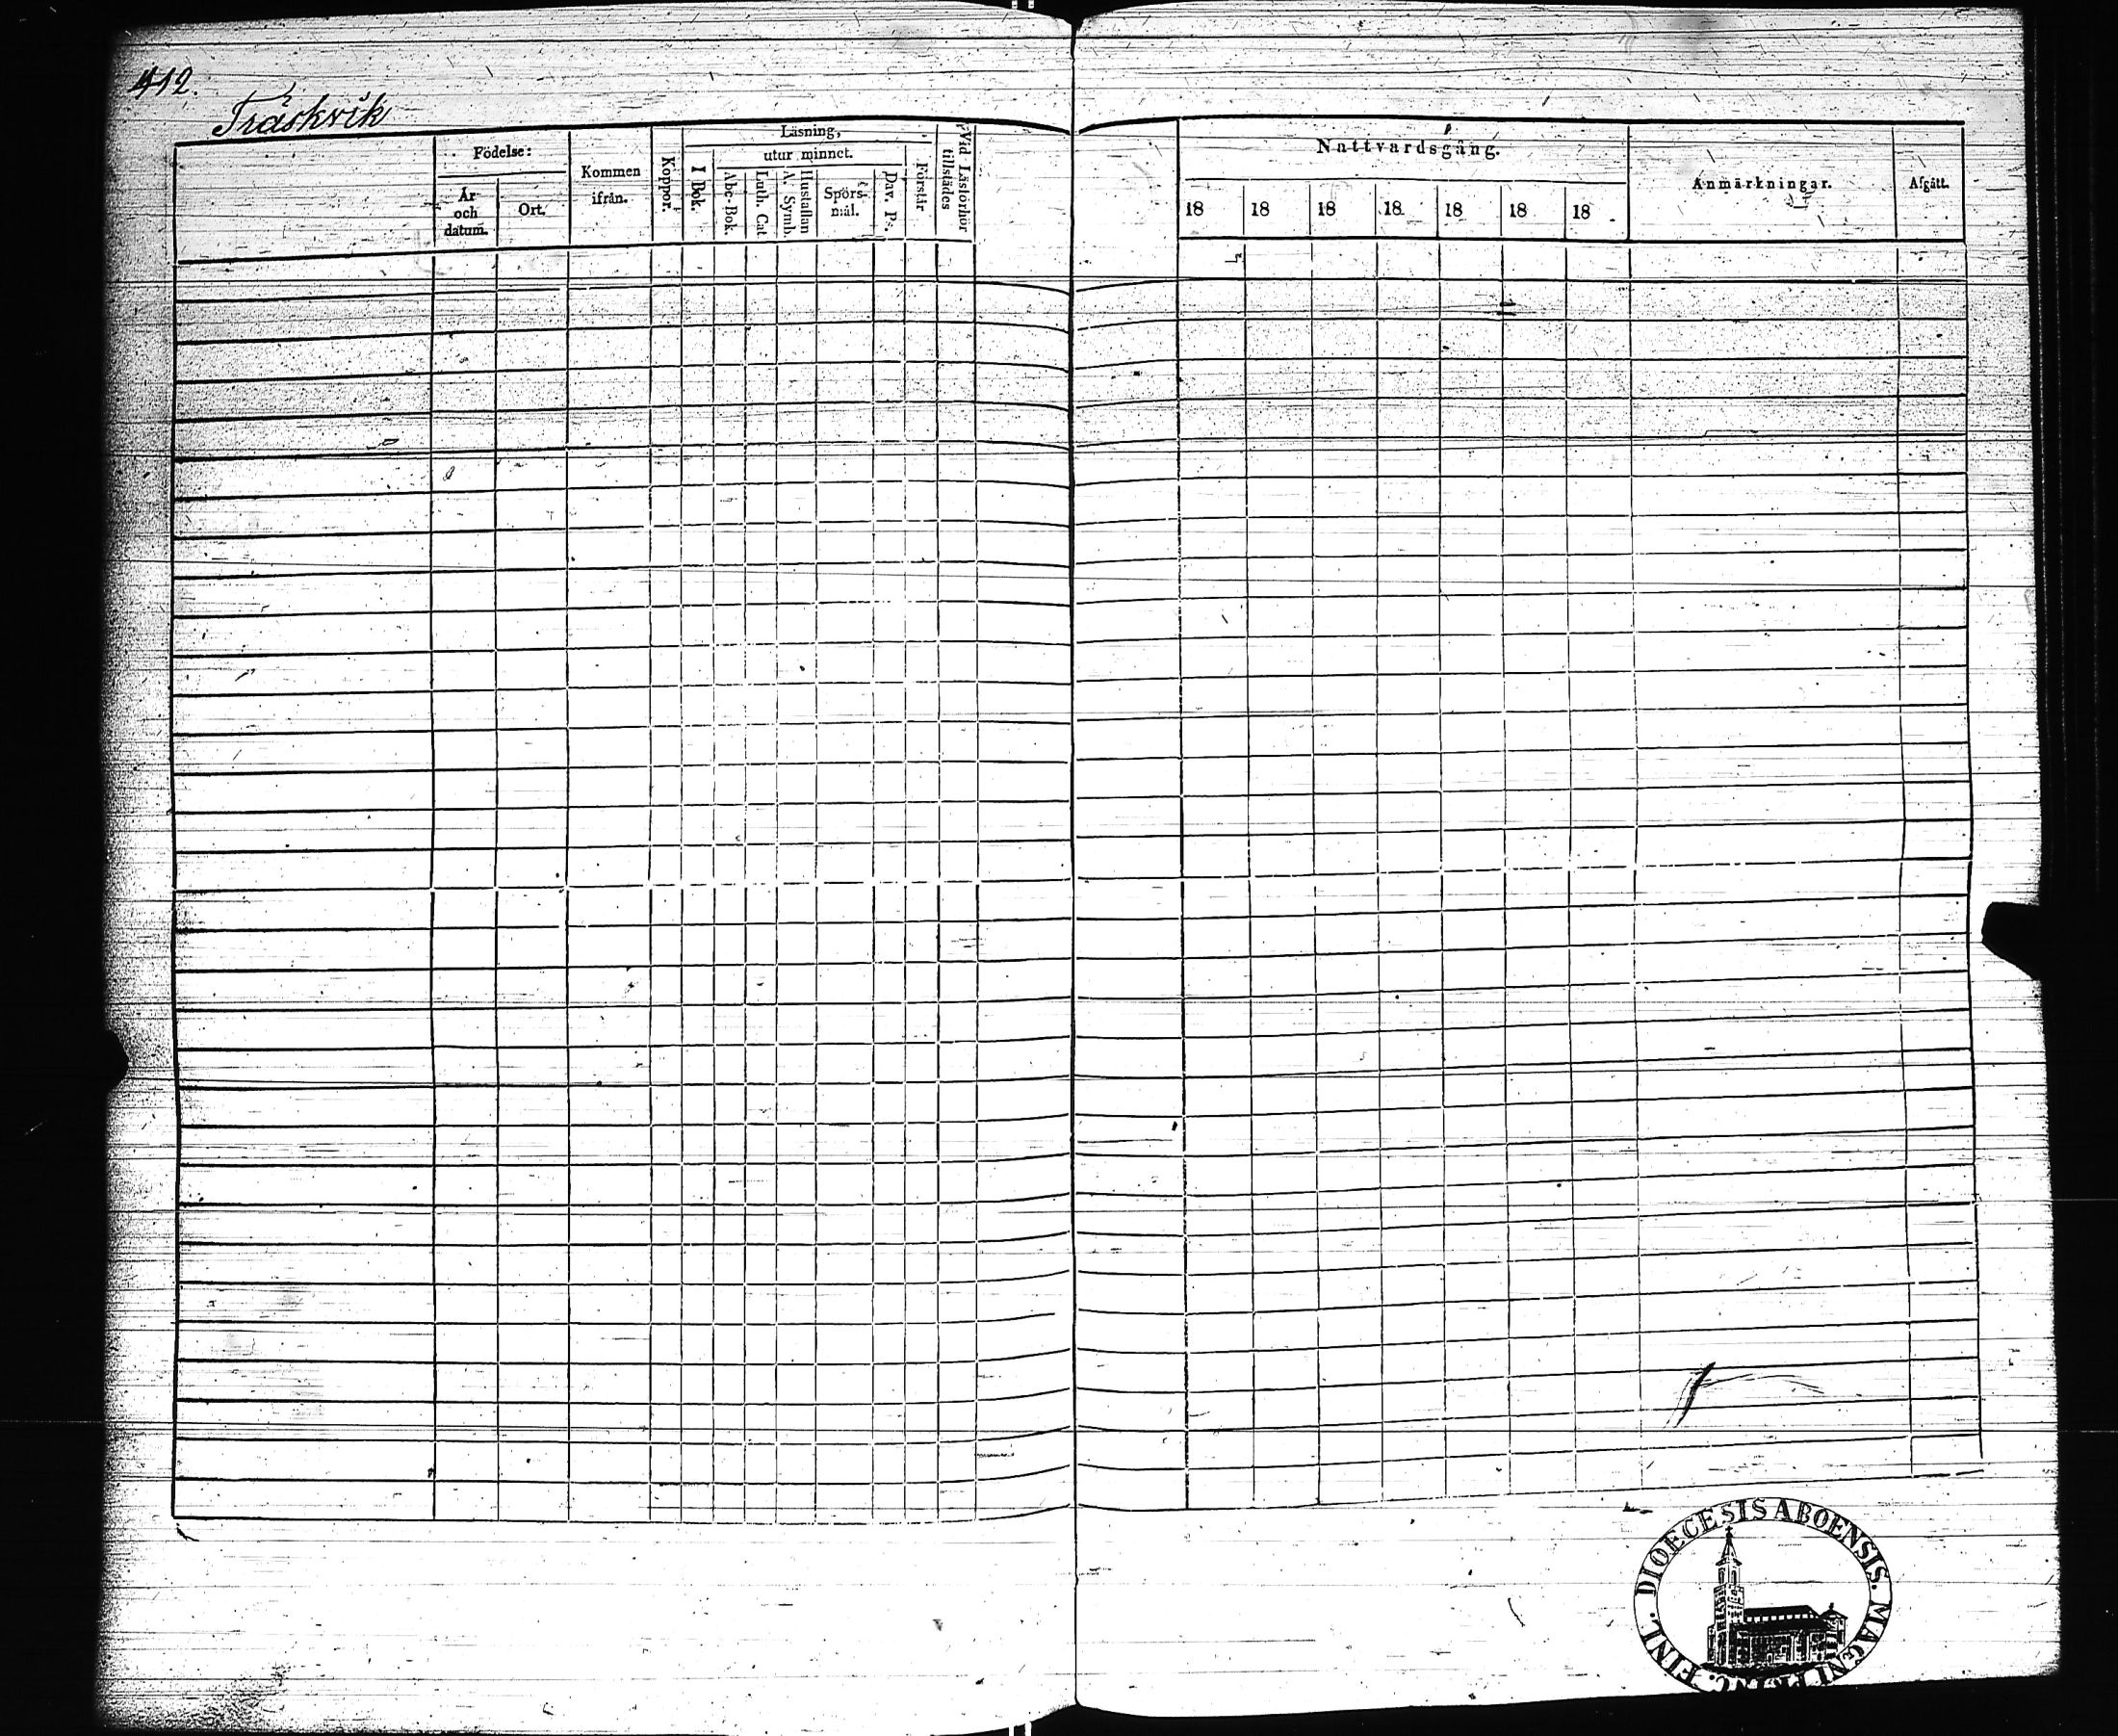 412.
Träskvik
Födelse:
År och datum.
Ort.
Kommen ifrån.
Koppor.
Läsning,
I Bok.
utur minnet.
Abc-Bok.
Luth. Cat.
Hustaflan A. Symb.
Spörsmål.
Dav. Ps.
Förstår
Vid Läsförhör tillstädes
Nattvardsgång.
18 18 18 18 18 18 18
Anmärkningar.
Afgått.
DIOECESIS ABOENSIS. MAGNI FINL.